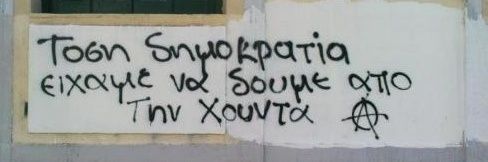 Τοση δημοκρατία
ειχαμε να δουμε απο
Την Χουντα Ⓐ